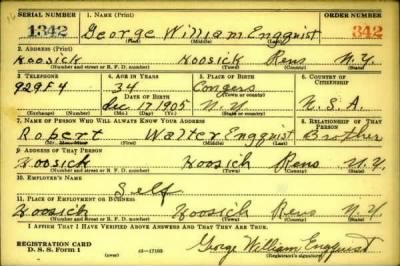 SERIAL NUMBER 1. NAME (Print) ORDER NUMBER
1342 George William Engquist 342
(First) (Middle) (Last)
2. ADDRESS (Print)
Hoosick Hoosick Rens N.Y.
(Number and street or R. F. D. number) (Town) (County) (State)
3. TELEPHONE 4. AGE IN YEARS 5. PLACE OF BIRTH 6. COUNTRY OF CITIZENSHIP
929F4 34 Congers
DATE OF BIRTH (Town or county)
Dec 17 1905 N.Y. U.S.A.
(Exchange) (Number) (Mo.) (Day) (Yr.) (State or country)
7. NAME OF PERSON WHO WILL ALWAYS KNOW YOUR ADDRESS 8. RELATIONSHIP OF THAT PERSON
Robert Walter Engquist Brother
(First) (Middle) (Last)
9. ADDRESS OF THAT PERSON
Hoosick Hoosick Rens N.Y.
(Number and street or R. F. D. number) (Town) (County) (State)
10. EMPLOYER'S NAME
Self
11. PLACE OF EMPLOYMENT OR BUSINESS
Hoosick Hoosick Rens N.Y.
(Number and street or R. F. D. number) (Town) (County) (State)
I AFFIRM THAT I HAVE VERIFIED ABOVE ANSWERS AND THAT THEY ARE TRUE.
REGISTRATION CARD
D. S. S. Form 1 (over) George William Engquist
(Registrant's signature)